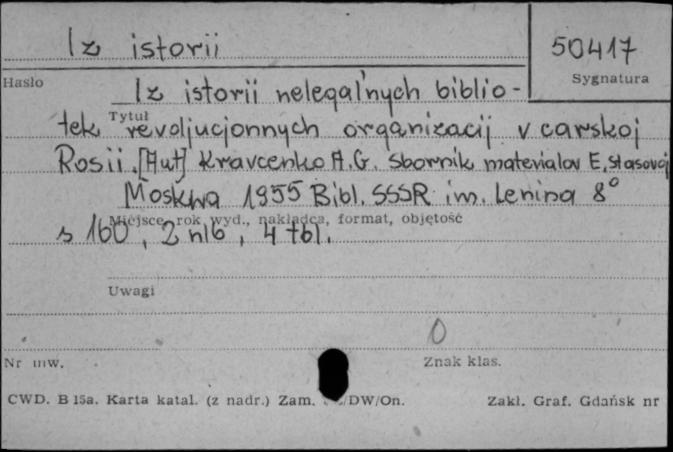 Iz istorii
50417
Sygnatura
Hasło
Iz istorii nelegal'nych biblio-
Tytuł
tek revoljucjonnych organizacij v carskoj
Rosii. [Aut] Kravcenko A.G. Sbornik materialov E. Stasovoj
Moskwa 1955 Bibl. SSSR im. Lenina 8°
Miejsce, rok wyd., nakładca, format, objętość
s 160, 2 nlb, 4 tbl.
Uwagi
0
Nr inw.
Znak klas.
CWD. B 15a. Karta katal. (z nadr.) Zam. /DW/On.
Zakł. Graf. Gdańsk nr